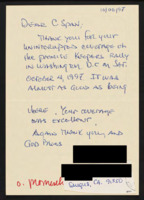 10/10/97
Dear C Span,
Thank you for your
uninterrupted coverage of
the Promise Keepers rally
in Washington D.C. on Sat.
October 4, 1997. It was
almost as good as being
there. Your coverage
was excellent.
Again thank you, and
God Bless
CA.